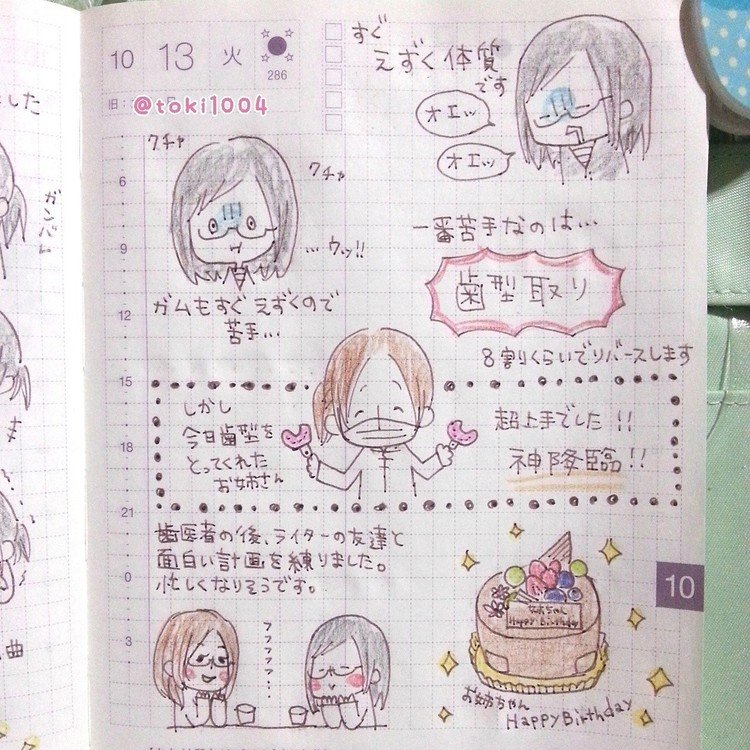 10 13 火
286
旧:
@toki1004
すぐ
えずく体質
です
オエッ
オエッ
クチャ
クチャ
…ウッ!!
ガムもすぐえずくので
苦手…
一番苦手なのは…
歯型取り
8割りくらいでリバースします
しかし
今日歯型を
とってくれた
お姉さん
超上手でした!!
神降臨!!
歯医者の後、ライターの友達と
面白い計画を練りました。
忙しくなりそうです。
フフフフフ…
お姉ちゃん
Happy Birthday
お姉ちゃん
Happy Birthday
6
9
12
15
18
21
0
3
10
ました
ガンバレ
曲